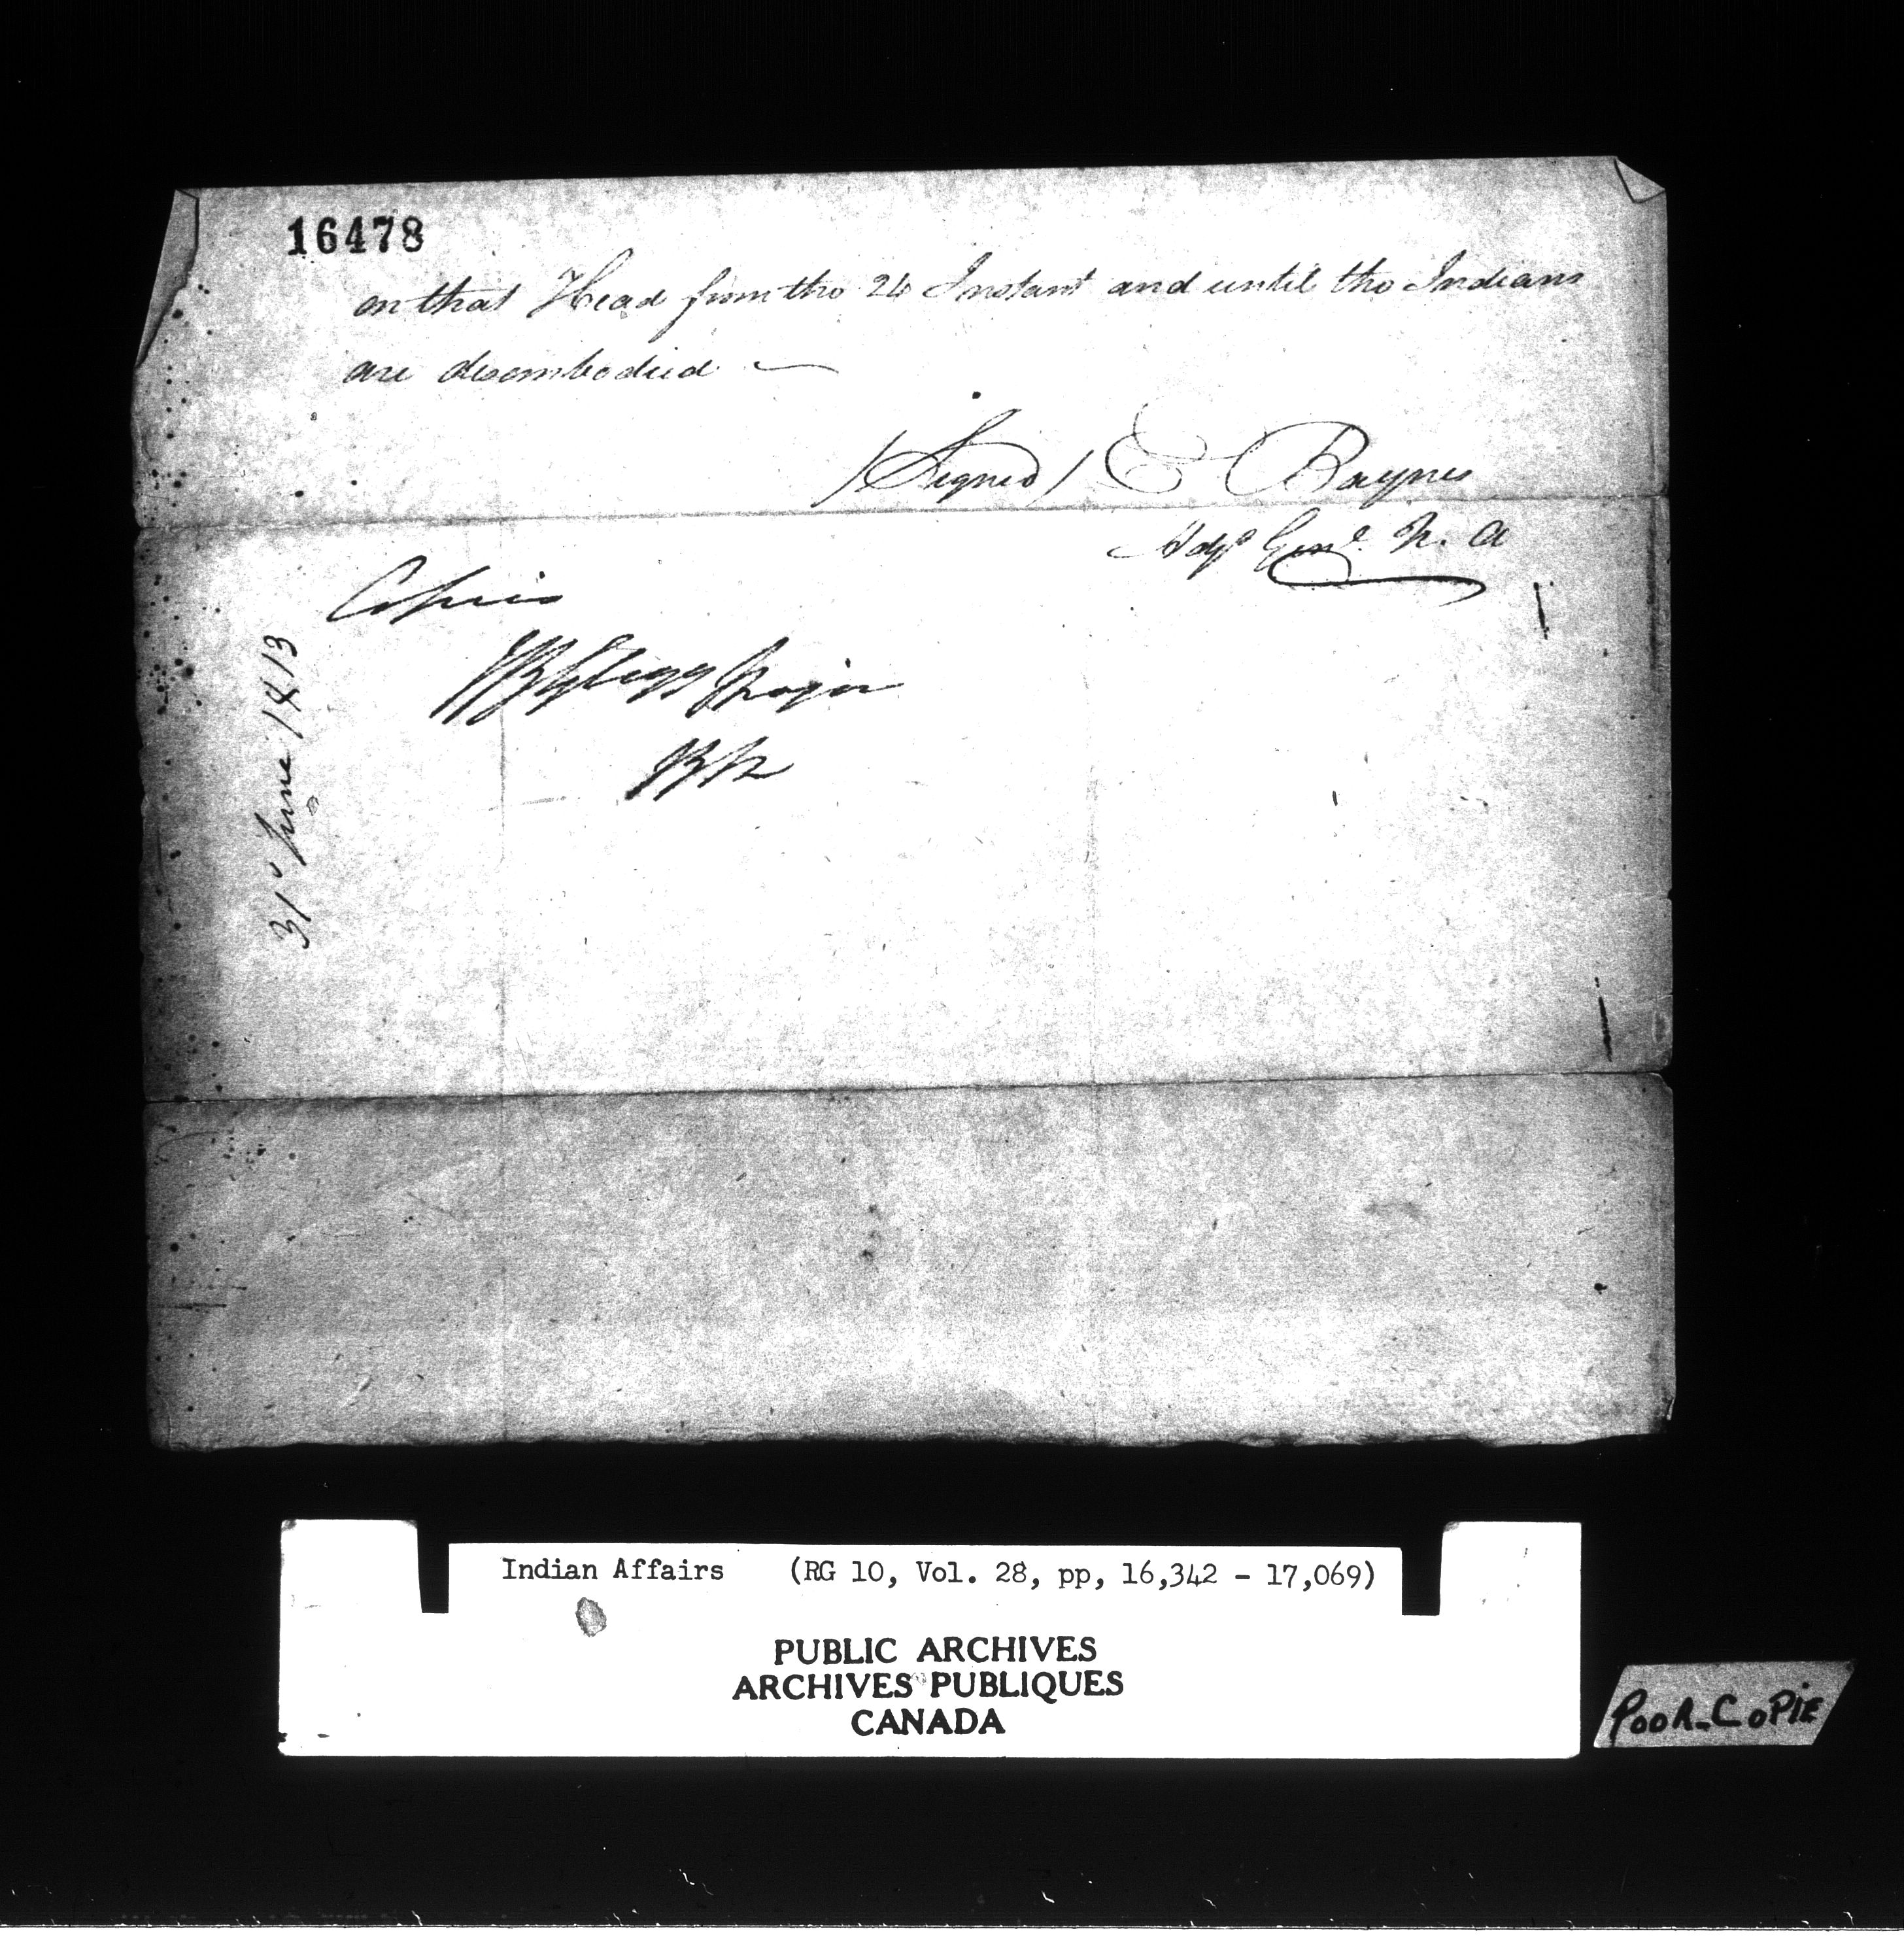 16478
on that Head from the 24 Instant and until the Indians
are disembodied
/Signed/ E Baynes
Adjt Genl. N. A
Copies
JB Glegg Major
31st June 1813
Indian Affairs (RG 10, Vol. 28, pp, 16,342 - 17,069)
PUBLIC ARCHIVES
ARCHIVES PUBLIQUES
CANADA
POOR-COPIE